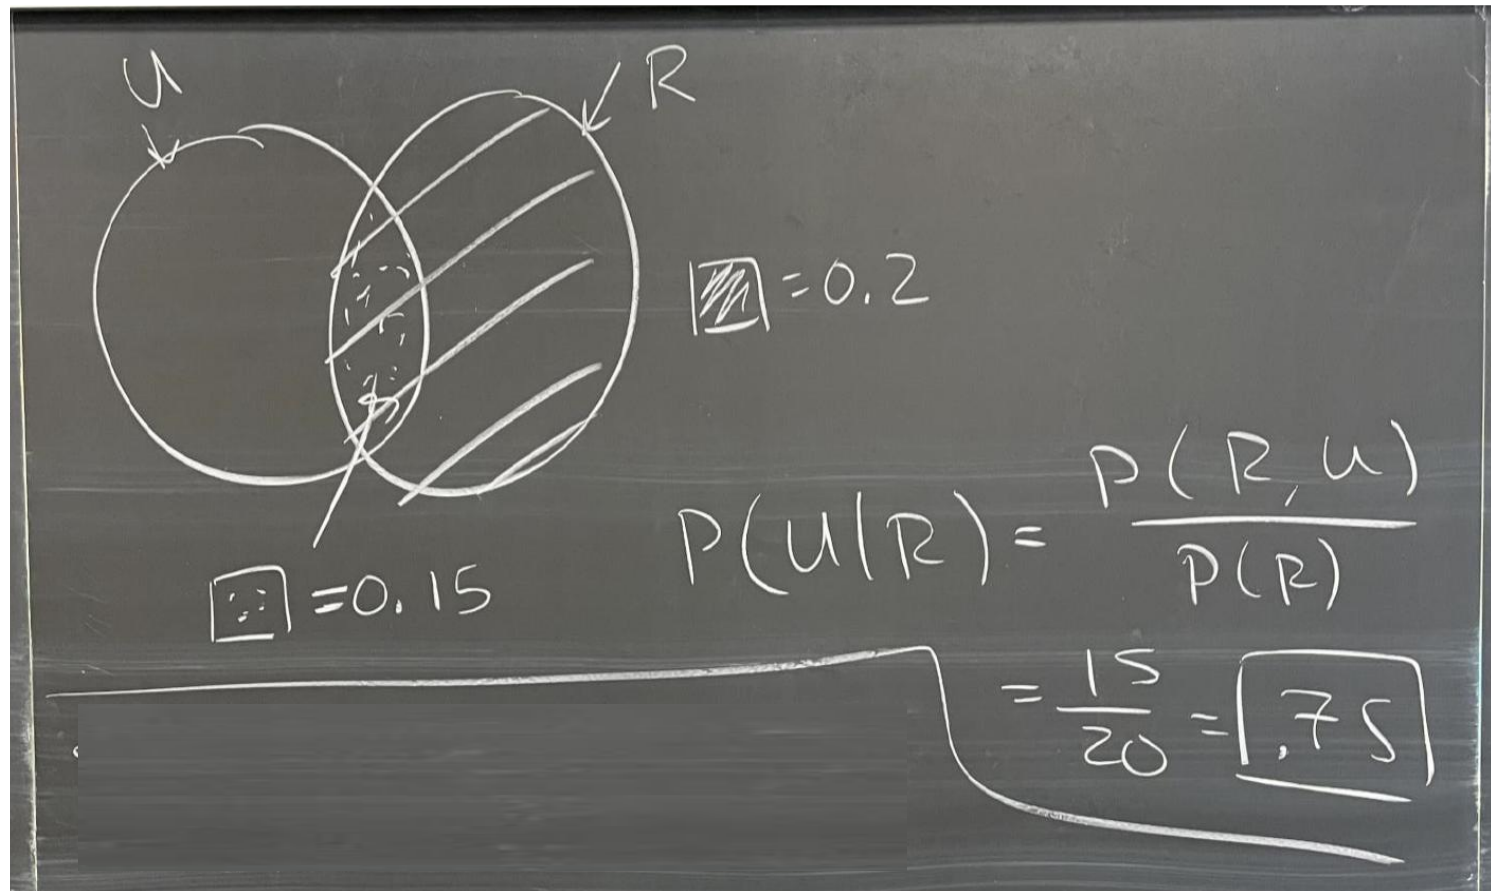 U
R
= 0.2
= 0.15
P(U|R) = P(R, U) / P(R)
= 15 / 20 = .75